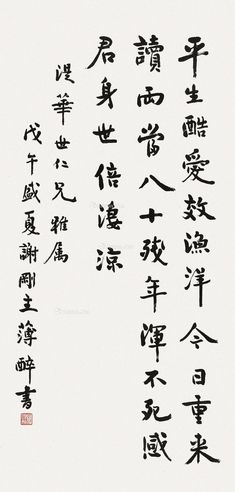 平生酷愛效漁洋今日重来
讀雨當八十殘年渾不死感
君身世倍淒涼
湜華世仁兄雅属
戊午盛夏謝剛主薄醉書